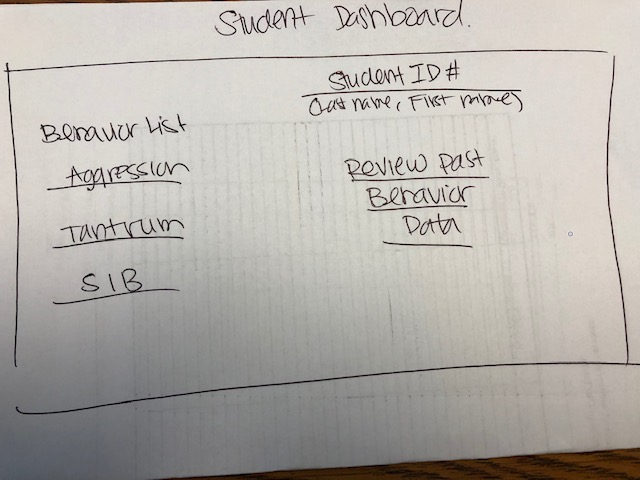 Student Dashboard.
Student ID #
(Last name, First name)
Behavior List
Aggression
Tantrum
SIB
Review Past
Behavior
Data